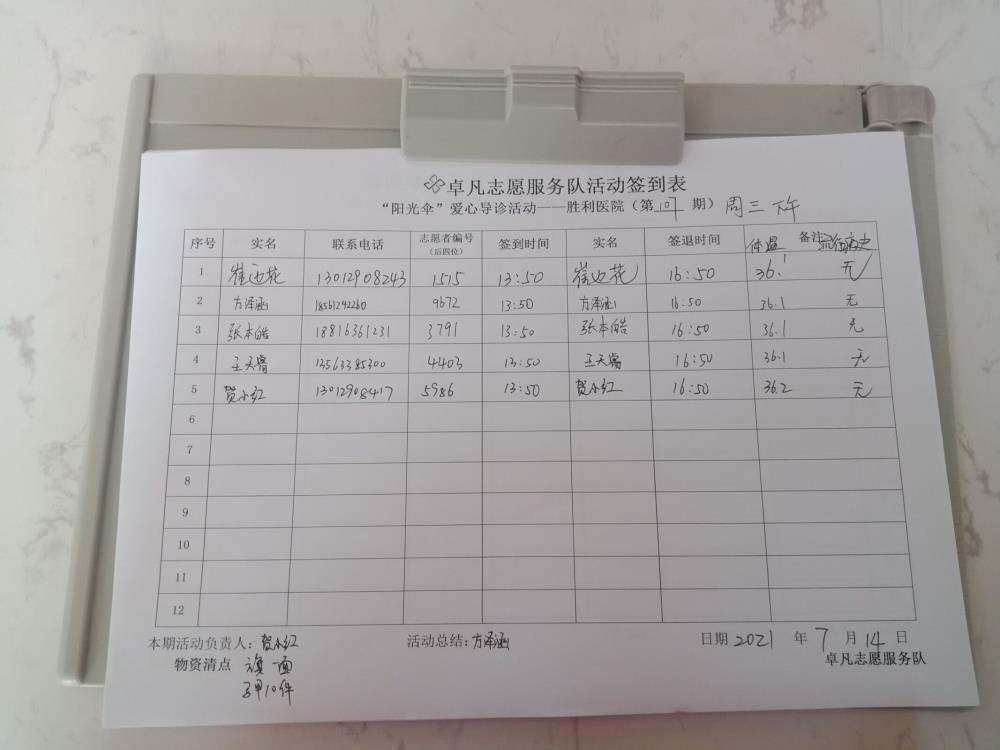 卓凡志愿服务队活动签到表
“阳光伞”爱心导诊活动——胜利医院（第107期）周三下午
序号 实名 联系电话 志愿者编号（后四位） 签到时间 实名 签退时间 体温 备注 流行病史
1 崔迎花 13012908243 1515 13:50 崔迎花 16:50 36.1 无
2 方泽涵 18561242260 9672 13:50 方泽涵 16:50 36.1 无
3 张本皓 18816361231 3791 13:50 张本皓 16:50 36.1 无
4 王天睿 13563385300 4403 13:50 王天睿 16:50 36.1 无
5 贺小红 13012908417 5986 13:50 贺小红 16:50 36.2 无
6
7
8
9
10
11
12
本期活动负责人：贺小红 活动总结：方泽涵 日期 2021 年 7 月 14 日
物资清点 旗一面 卓凡志愿服务队
马甲10件